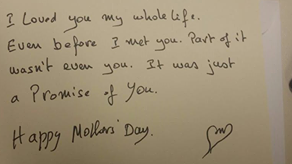 I Loved you my whole life.
Even before I met you. Part of it
wasn't even you. It was just
a Promise of You.
Happy Mothers' Day.